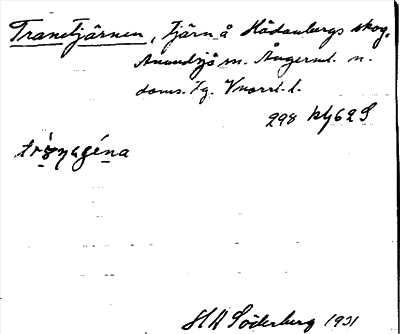 Tranetjärnen, tjärn å Hädanbergs skog,
Anundsjö sn. Ångerml. n.
doms. Tg. Vnorrl. l.
298 kly62S
H A Söderberg 1931